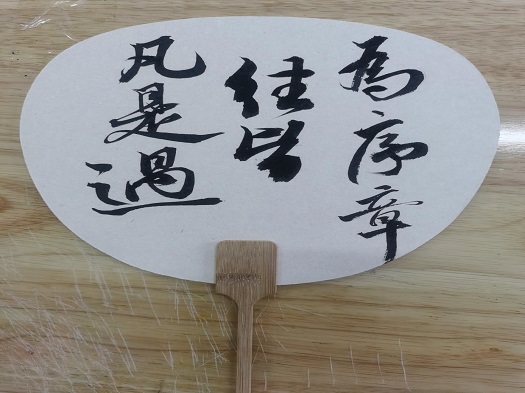 凡是過
往皆
為序章